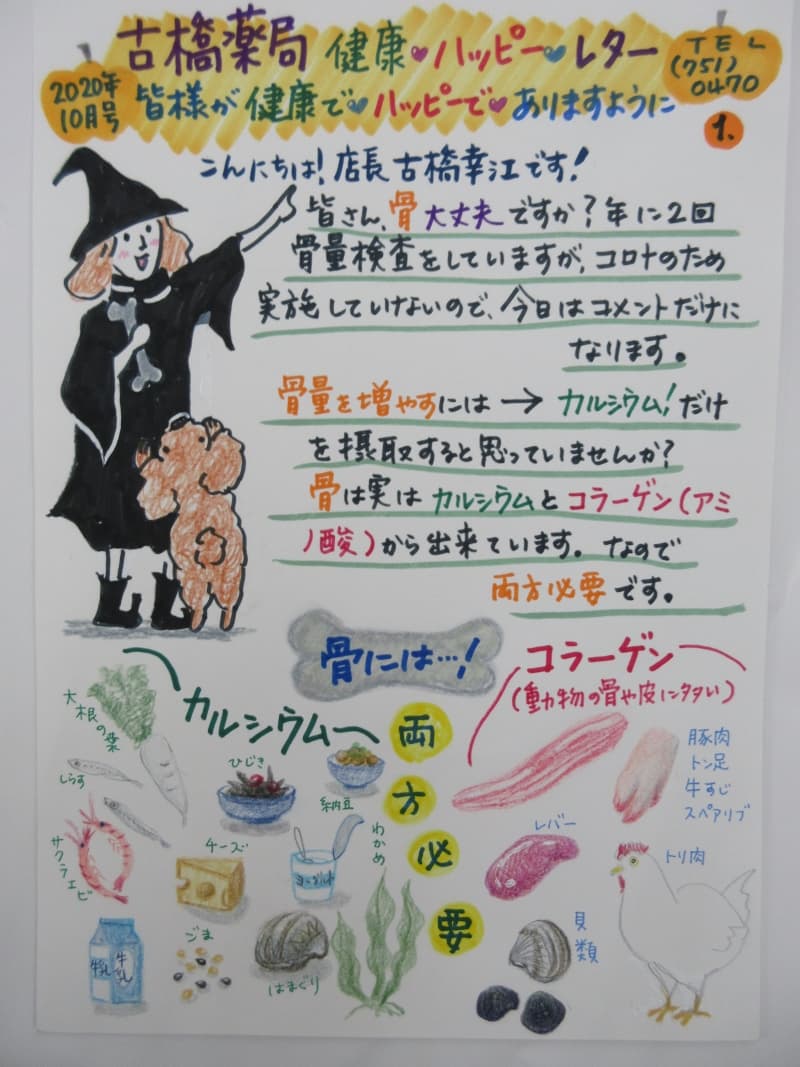 古橋薬局 健康♥ハッピー♥レター
TEL
(751)
0470
2020年
10月号
皆様が健康で♥ハッピーで♥ありますように
1.
こんにちは!店長古橋幸江です!
皆さん、骨大丈夫ですか?年に2回
骨量検査をしていますが、コロナのため
実施していけないので、今日はコメントだけに
なります。
骨量を増やすには→カルシウム!だけ
を摂取すると思っていませんか?
骨は実はカルシウムとコラーゲン(アミ
ノ酸)から出来ています。なので
両方必要です。
骨には…!
カルシウム
大根の葉
しらす
ひじき
納豆
サクラエビ
チーズ
ヨーグルト
わかめ
牛乳
牛乳
ごま
はまぐり
両方必要
コラーゲン
(動物の骨や皮に多い)
豚肉
トン足
牛すじ
スペアリブ
レバー
トリ肉
貝類